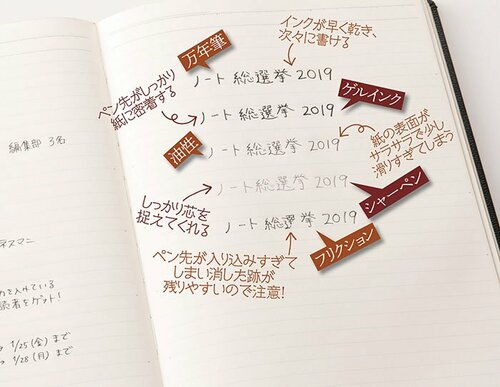 インクが早く乾き、
次々に書ける
万年筆
ペン先がしっかり
紙に密着する
ノート 総選挙 2019
ゲルインク
ノート 総選挙 2019
油性
ノート 総選挙 2019
紙の表面が
サラサラで少し
滑りすぎてしまう
ノート総選挙 2019
シャーペン
しっかり芯を
捉えてくれる
ノート 総選挙 2019
フリクション
ペン先が入り込みすぎて
しまい消した跡が
残りやすいので注意!
編集部 3名
テスマニ
れている
読者をゲット!
1/25(金)まで
1/28(月)まで